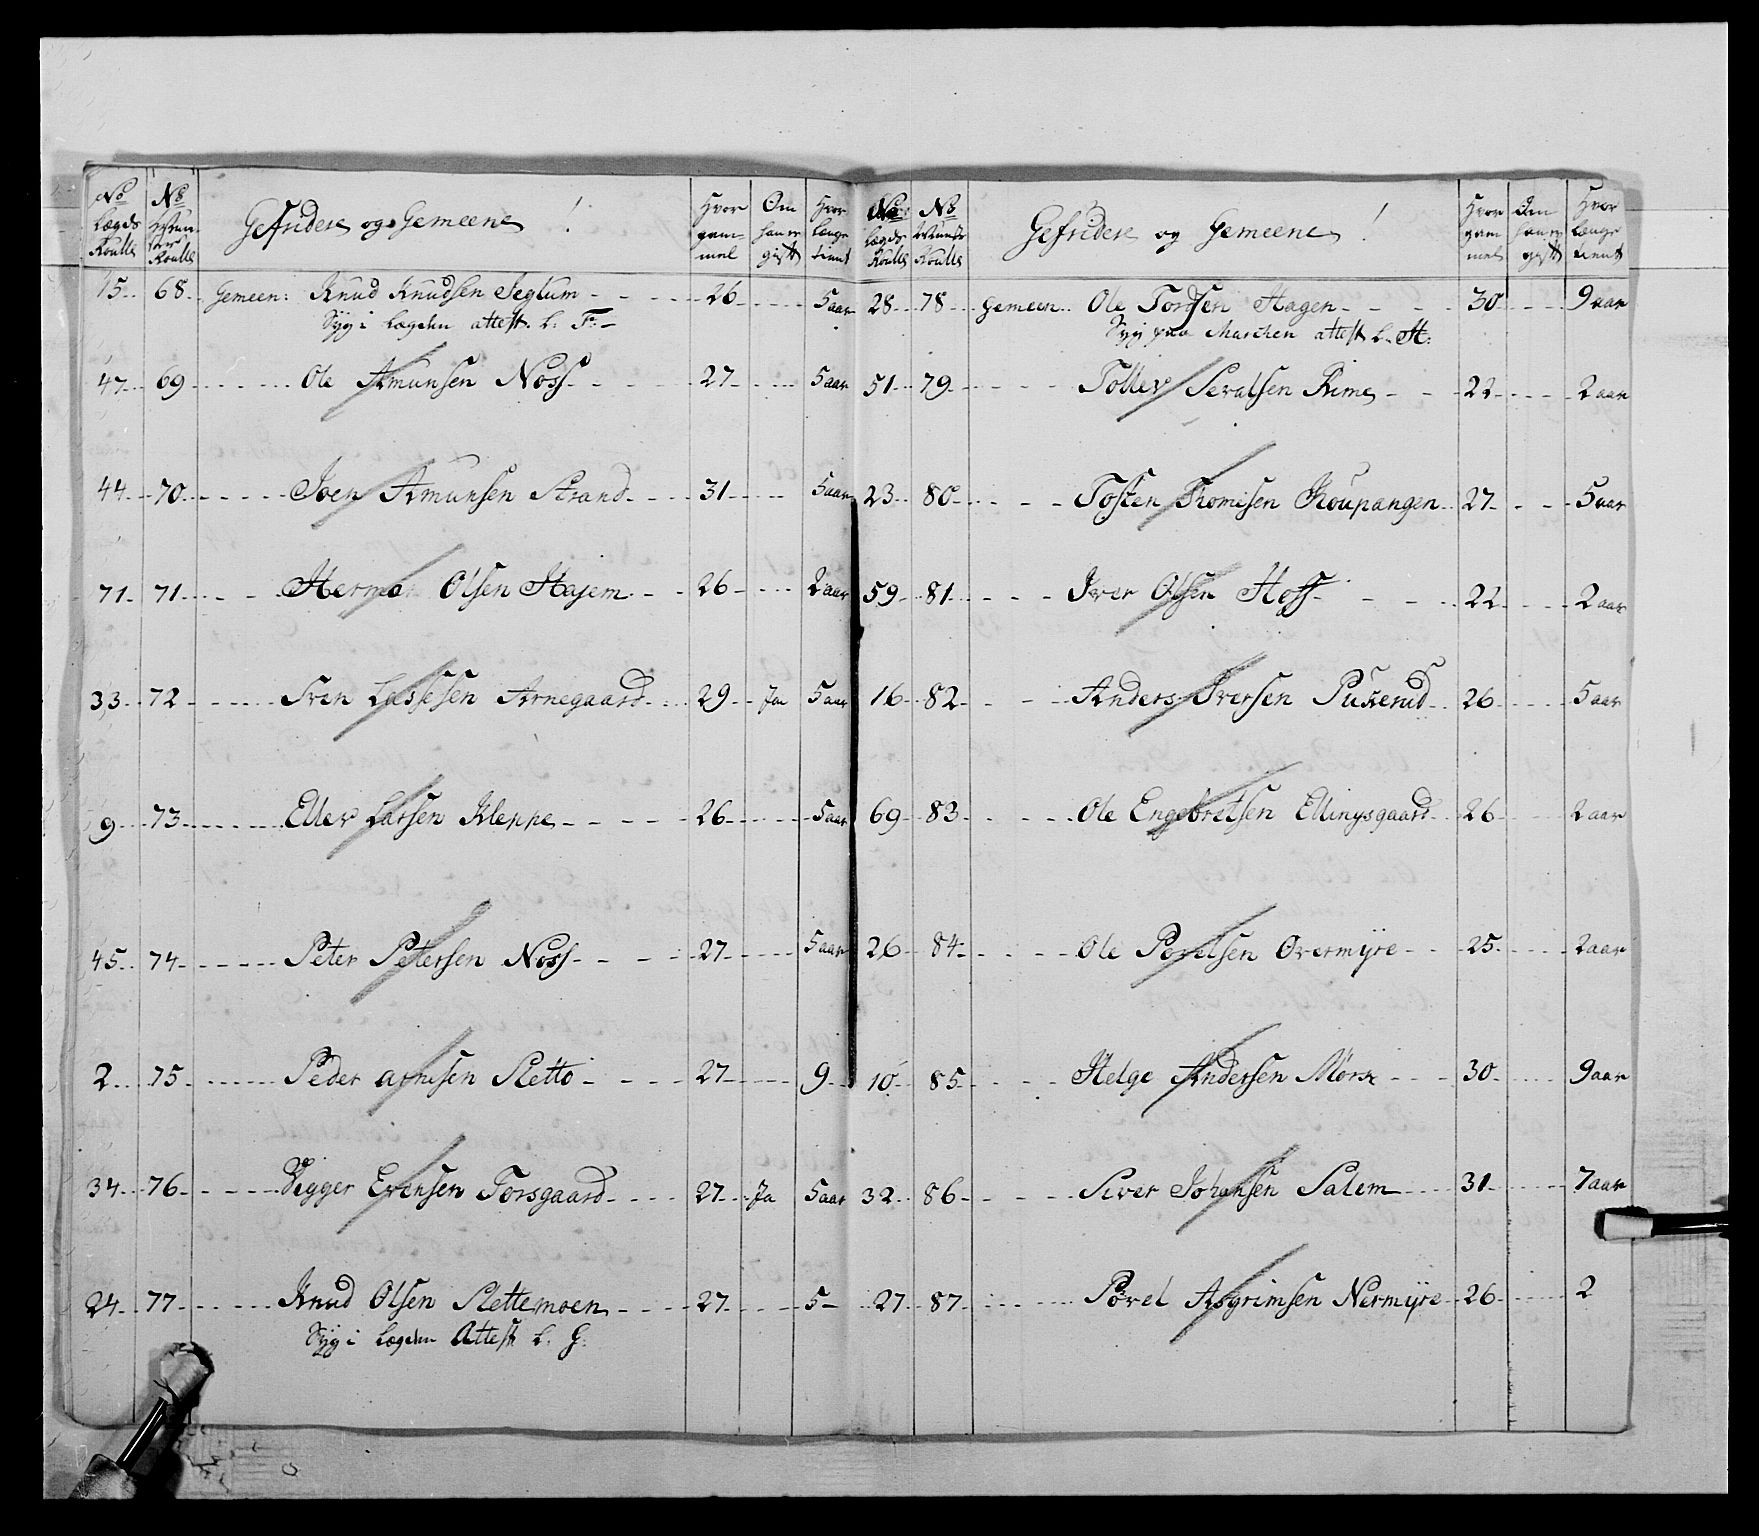 No Lægds Roulle | No Mun- ster Roulle | Gefridere og Gemeene ! | Hvor gam- mel | Om han er gift | Hvor længe tient
15 | 68 | Gemeen: Knud Knudsen Seglum | 26 | | 5 aar
Syg i Lægden attest. L: F:
47 | 69 | Ole Amunsen Noss | 27 | | 5 aar
44 | 70 | Joen Amunsen Strand | 31 | | 5 aar
71 | 71 | Herman Olsen Hajem | 26 | | 2 aar
33 | 72 | Sven Lassesen Arnegaard | 29 | Ja | 5 aar
9 | 73 | Eller Larsen Kleppe | 26 | | 5 aar
45 | 74 | Peter Petersen Noss | 27 | | 5 aar
2 | 75 | Peder Arnesen Sletto | 27 | | 9
34 | 76 | Vegger Evensen Torsgaard | 27 | Ja | 5 aar
24 | 77 | Knud Olsen Slettemoen | 27 | | 5
Syg i Lægden Attest L. G:
No Lægds Roulle | No Munst Roulle | Gefridere og Gemeene ! | Hvor gam mel | Om han er gift | Hvor længe tient
28 | 78 | Gemeen Ole Tordsen Hagen | 30 | | 9 aar
Syg paa Marchen attest L. H:
51 | 79 | Tollev Sevalsen Rime | 22 | | 2 aar
23 | 80 | Tosten Thomesen Koupangen | 27 | | 5 aar
59 | 81 | Iver Olsen Hoff | 22 | | 2 aar
16 | 82 | Anders Iversen Pukerud | 26 | | 5 aar
69 | 83 | Ole Engebretsen Ellingsgaard | 26 | | 2 aar
26 | 84 | Ole Povelsen Overmyre | 25 | | 2 aar
10 | 85 | Helge Andersen Mørk | 30 | | 9 aar
32 | 86 | Siver Johansen Salem | 31 | | 7 aar
27 | 87 | Povel Asgrimsen Nermyre | 26 | | 2